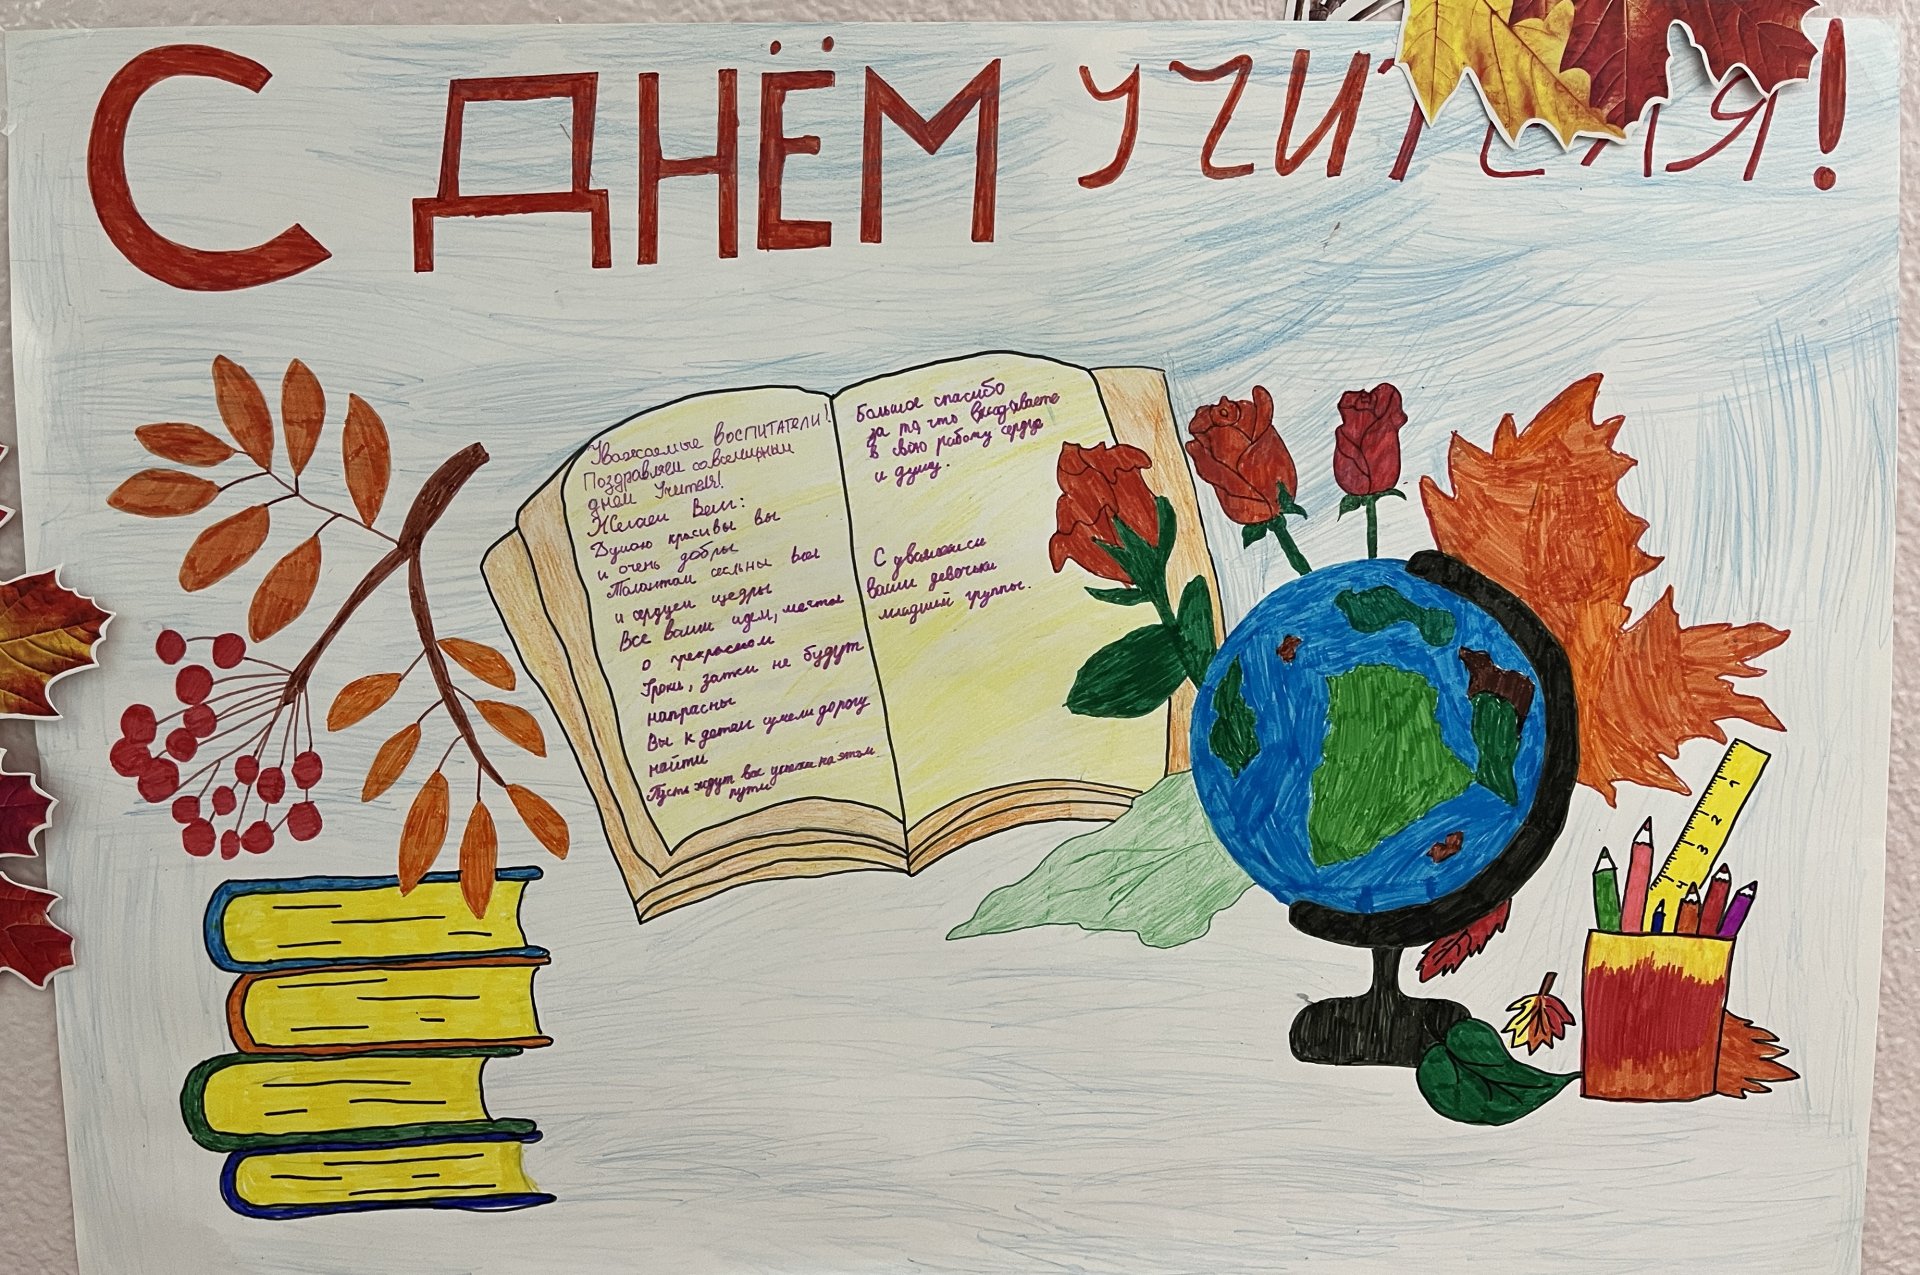 С ДНЁМ УЧИТЕЛЯ!
Уважаемые Воспитатели!
Поздравляем со всемирным
днём Учителя!
Желаем Вам:
Душою красивы вы
и очень добры
Талантом сильны вы
и сердцем щедры
Все ваши идеи, мечты
о прекрасном
Уроки, затеи не будут
напрасны
Вы к детям сумели дорогу
найти
Пусть ждут вас успехи на этом
пути
Большое спасибо
за то что вкладываете
в свою работу сердце
и душу.
С
ваши девочки
младшей группы.
1
2
3
4